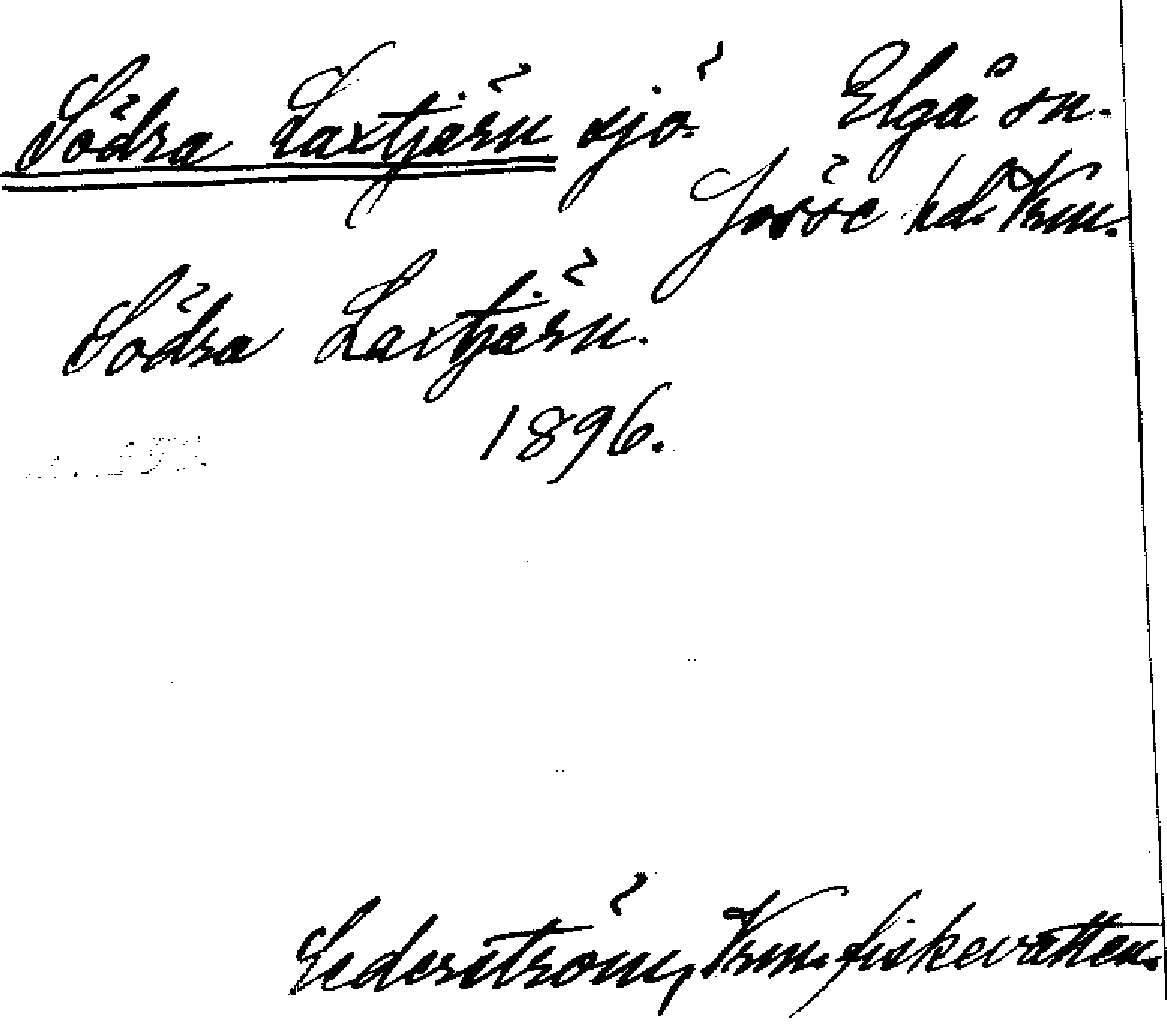 Södra Laxtjärn sjö. Elgå sn.
Jösse hd. Vrm.
Södra Laxtjärn.
1896.
Cederström, Vrm. fiskevatten.